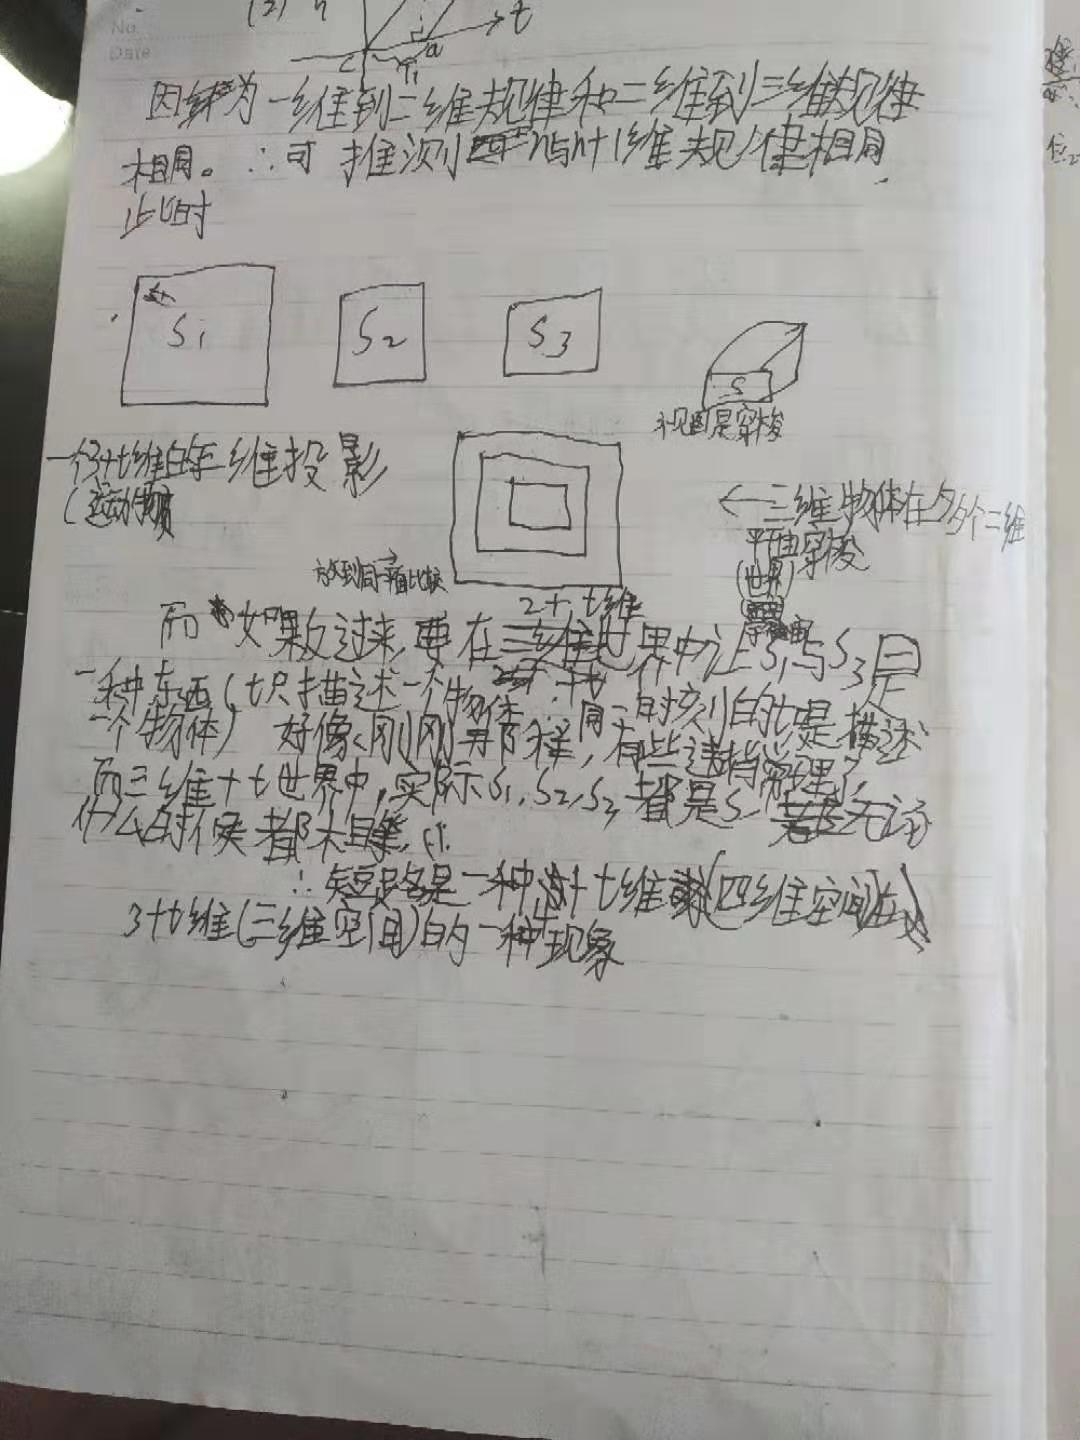 No.
Date
(2)
t
c
a
T1
因为一维到二维规律和二维到三维规律
相同。∴可推测n与n+1维规律相同
此时
S1
S2
S3
S
主视图是穿梭
一个3+t维的二维投影
(运动物质
←三维物体在多个二维
平面穿梭
(世界)
放到同一着比较
2+t维
而如果反过来,要在世界中让S1与S3是
一种东西(t只描述一个物体,同一时刻的t是描述
一个物体)好像刚刚那样,有些违背常理了,
而三维+t世界中,实际S1,S2,S3都是S 无论
什么时候都
∴短路是一种+t维(四维空间)在
3+t维(三维空间)的一种现象